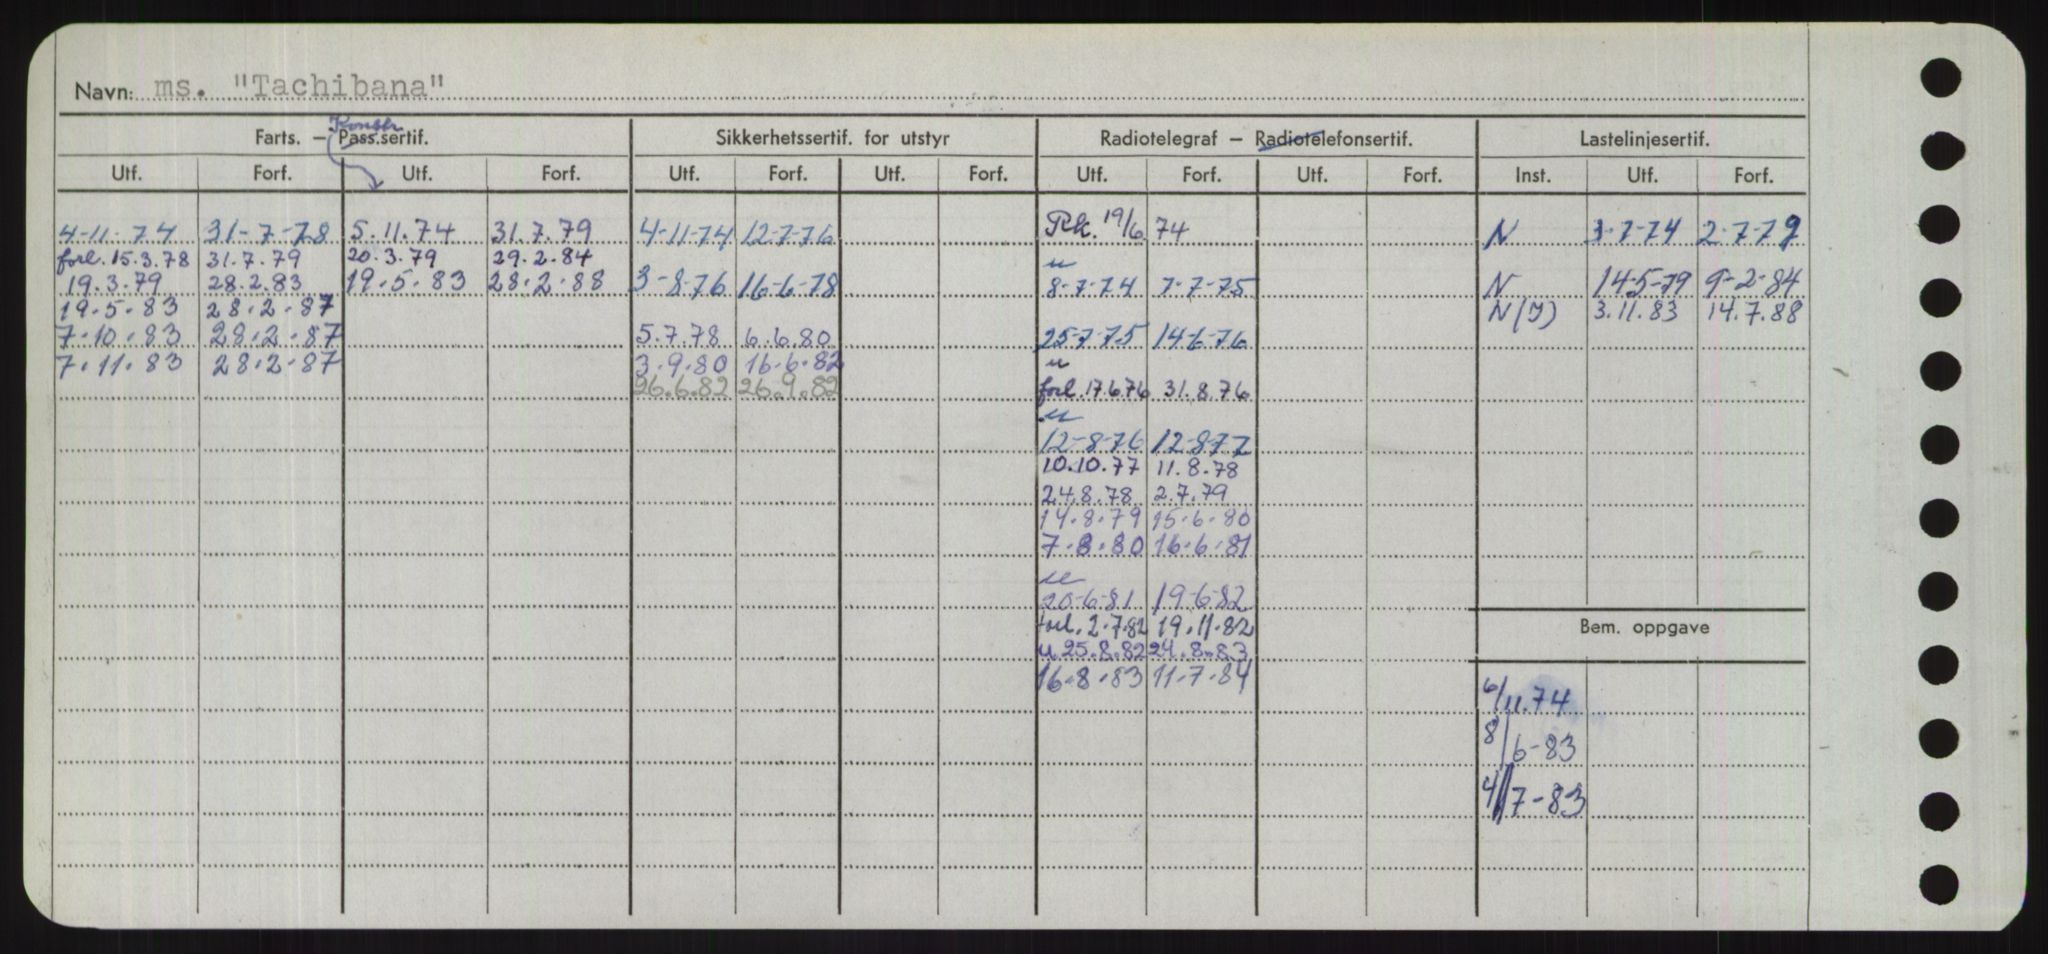 Navn: ms. "Tachibana"
Konstr
Farts. — Pass.sertif. Sikkerhetssertif. for utstyr Radiotelegraf — Radiotelefonsertif. Lastelinjesertif.
Utf. Forf. Utf. Forf. Utf. Forf. Utf. Forf. Utf. Forf. Utf. Forf. Inst. Utf. Forf.
4-11-74 31-7-78 5.11.74 31.7.79 4-11-74 12-7-76 Rk. 19/6 74 N 3-7-74 2-7-79
forl. 15.3.78 31.7.79 20.3.79 29.2.84 u
19.3.79 28.2.83 19.5.83 28.2.88 3-8-76 16-6-78 8-7-74 7-7-75 N 14-5-79 9-2-84
19.5.83 28.2.87 N(I) 3.11.83 14.7.88
7.10.83 28.2.87 5.7.78 6.6.80 25-7-75 14-6-76
7.11.83 28.2.87 3.9.80 16.6.82 u
26.6.82 26.9.82 forl. 17.6.76 31.8.76
u
12-8-76 12-8-77
10.10.77 11.8.78
24.8.78 2.7.79
14.8.79 15.6.80
7.8.80 16.6.81
u
20-6-81 19-6-82
forl. 2.7.82 19.11.82 Bem. oppgave
u 25.8.82 24.8.83
16.8.83 11.7.84 6/11.74
8/6-83
4/7-83